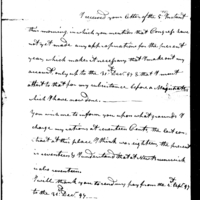 I received your letter of the 5 Instant
this morning in which you mention that Congress have
not yet made any appropriations for the present
year which make it necessary that I make out my
account only up to the 31st Decr 97 & that I must
attest to that for my subsistence before a Magistrate
which I have now done
You wish me to inform you upon what grounds I
charge my rations at seventeen Cents, the last con-
tract at this place I think was eighteen, the present
is seventeen & I understand that at
is also seventeen.
I will thank you to send my pay from the 1 Sept 97
to the 31st Decr 97.